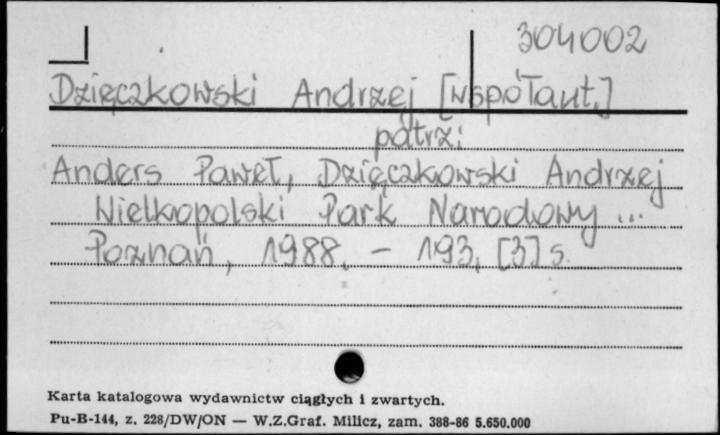 304002
Dzięczkowski Andrzej [współaut.]
patrz:
Anders Paweł, Dzięczkowski Andrzej
Wielkopolski Park Narodowy ...
Poznań, 1988. - 193, [3] s.
Karta katalogowa wydawnictw ciągłych i zwartych.
Pu-B-144, z. 228/DW/ON — W.Z.Graf. Milicz, zam. 388-86 5.650.000